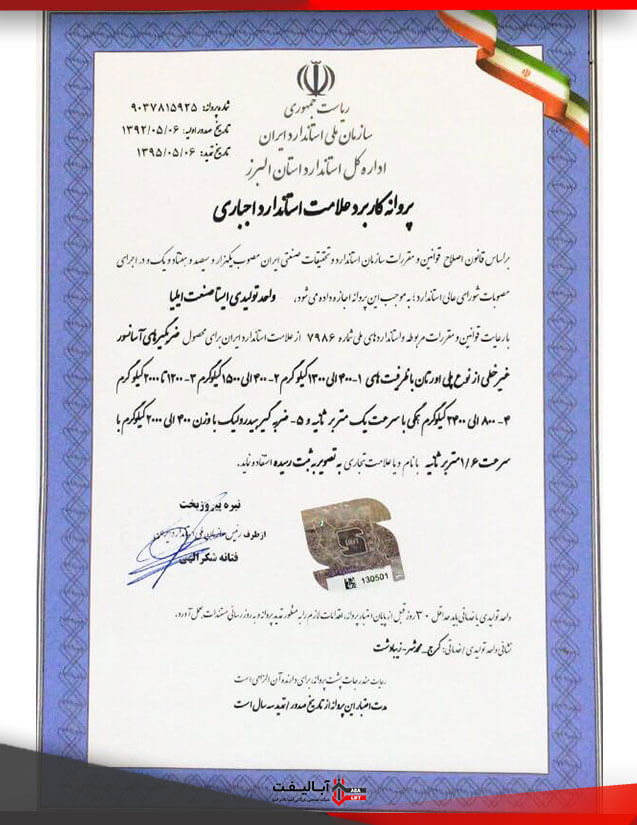 ریاست جمهوری
سازمان ملی استاندارد ایران
اداره کل استاندارد استان البرز
شماره پروانه: ۹۰۳۷۸۱۵۹۲۵
تاریخ صدور اولیه: ۱۳۹۲/۰۵/۰۶
تاریخ تمدید: ۱۳۹۵/۰۵/۰۶
پروانه کاربرد علامت استاندارد اجباری
براساس قانون اصلاح قوانین و مقررات سازمان استاندارد و تحقیقات صنعتی ایران مصوب یکهزار و سیصد و هفتاد و یک و در اجرای
مصوبات شورای عالی استاندارد؛ به موجب این پروانه اجازه داده می شود، واحد تولیدی ایستا صنعت ایلیا
با رعایت قوانین و مقررات مربوطه و استانداردهای ملی شماره ۷۹۸۶ از علامت استاندارد ایران برای محصول ضربه گیرهای آسانسور
غیرخطی از نوع پلی اورتان با ظرفیت های ۱-۴۰۰ الی ۱۳۰۰ کیلوگرم ۲-۴۰۰ الی ۱۵۰۰ کیلوگرم ۳-۱۲۰۰ تا ۲۰۰۰ کیلوگرم
۴-۸۰۰ الی ۲۴۰۰ کیلوگرم همگی با سرعت یک متر بر ثانیه و ۵-ضربه گیر هیدرولیک با وزن ۴۰۰ الی ۲۰۰۰ کیلوگرم با
سرعت ۱/۶ متر بر ثانیه با نام و یا علامت تجاری به تصویر به ثبت رسیده استفاده نماید.
نیره پیروزبخت
از طرف رئیس سازمان ملی استاندارد ایران
فتانه شکرالهی
130501
واحد تولیدی یا خدماتی باید حداقل ۳۰ روز قبل از پایان اعتبار پروانه، اقدامات لازم را به منظور تمدید پروانه و به روز رسانی مستندات بعمل آورد.
نشانی واحد تولیدی / خدماتی: کرج_محمدشهر-زیبادشت
رعایت مندرجات پشت پروانه، برای دارنده آن الزامی است
مدت اعتبار این پروانه از تاریخ صدور / تمدید سه سال است
آبالیفت
ABA
LIFT